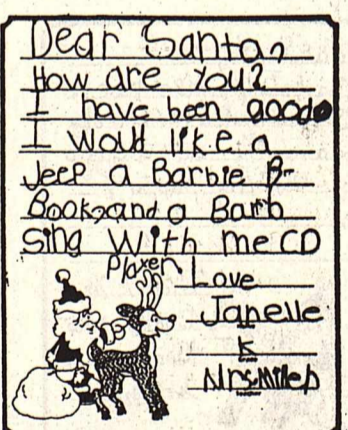 Dear Santa,
How are you?
I have been good
I woud like a
Jeep a Barbie B-
Book, and a Barb
Sing with me CD
Player Love
Janelle
K
Mrs. Miller